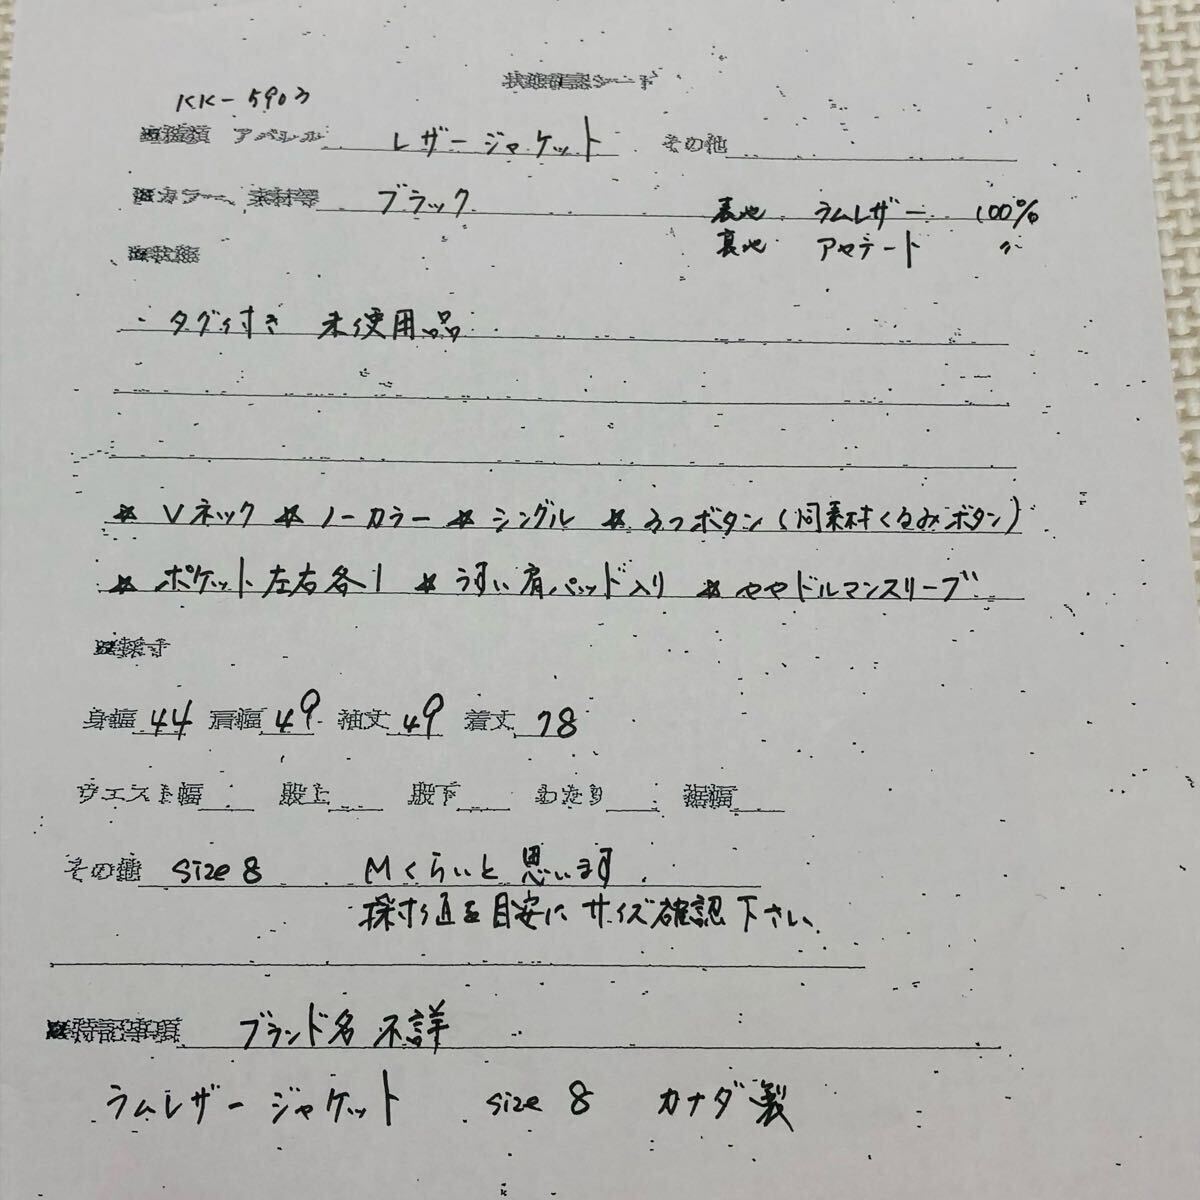 状態確認シート
KK-5903
※種類 アパレル レザージャケット その他
※カラー、素材等 ブラック 表地 ラムレザー 100%
裏地 アセテート 〃
※状態
・タグ付き 未使用品
☆ Vネック ☆ ノーカラー ☆ シングル ☆ 3つボタン(同素材くるみボタン)
☆ ポケット左右各1 ☆ うすい肩パッド入り ☆ ややドルマンスリーブ
※採寸
身幅 44 肩幅 49 袖丈 49 着丈 78
ウエスト幅 股上 股下 わたり 裾幅
その他 size 8 Mくらいと思います
採寸値を目安にサイズ確認下さい。
※特記事項 ブランド名 不詳
ラムレザー ジャケット size 8 カナダ製